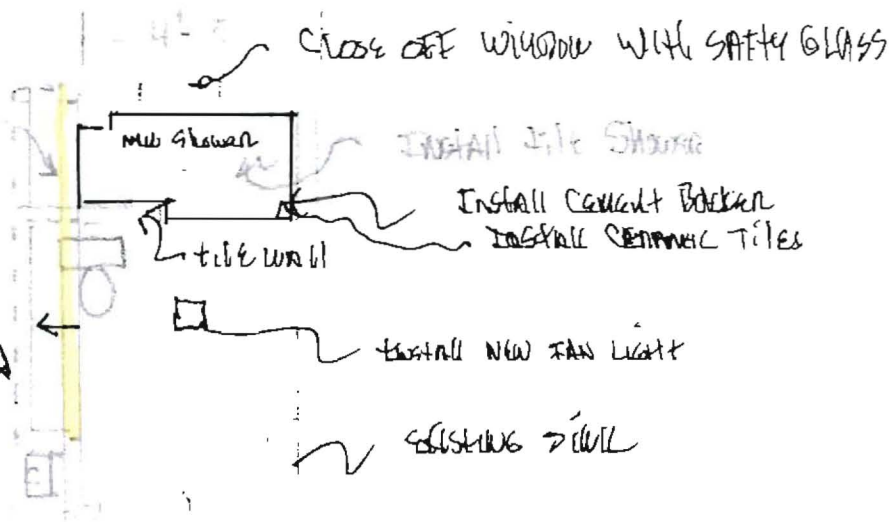 4'-
CLOSE OFF WINDOW WITH SAFTY GLASS
NEW SHOWER
INSTALL TILE SHOWER
INSTALL CEMENT BACKER
INSTALL CERAMIC TILES
TILE WALL
INSTALL NEW FAN LIGHT
EXISTING